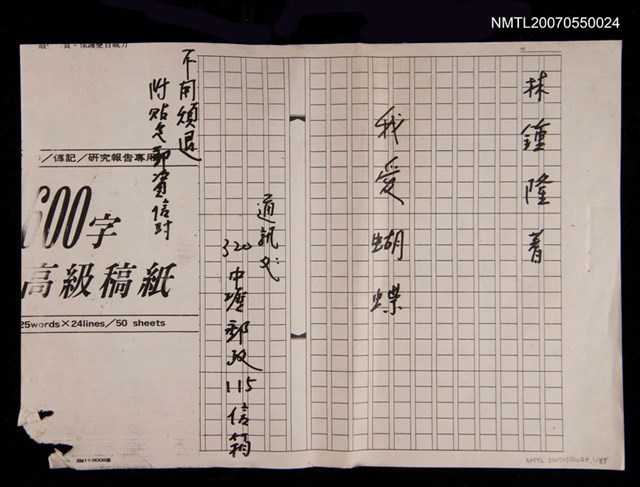 NMTL20070550024
林鍾隆著
我愛蝴蝶
通訊處
320中壢郵政115信箱
不用煩退
附貼足郵資信封
／傳記／研究報告專用
600字
高級稿紙
25words×24lines／50 sheets
NMTL 20070550024 1/85